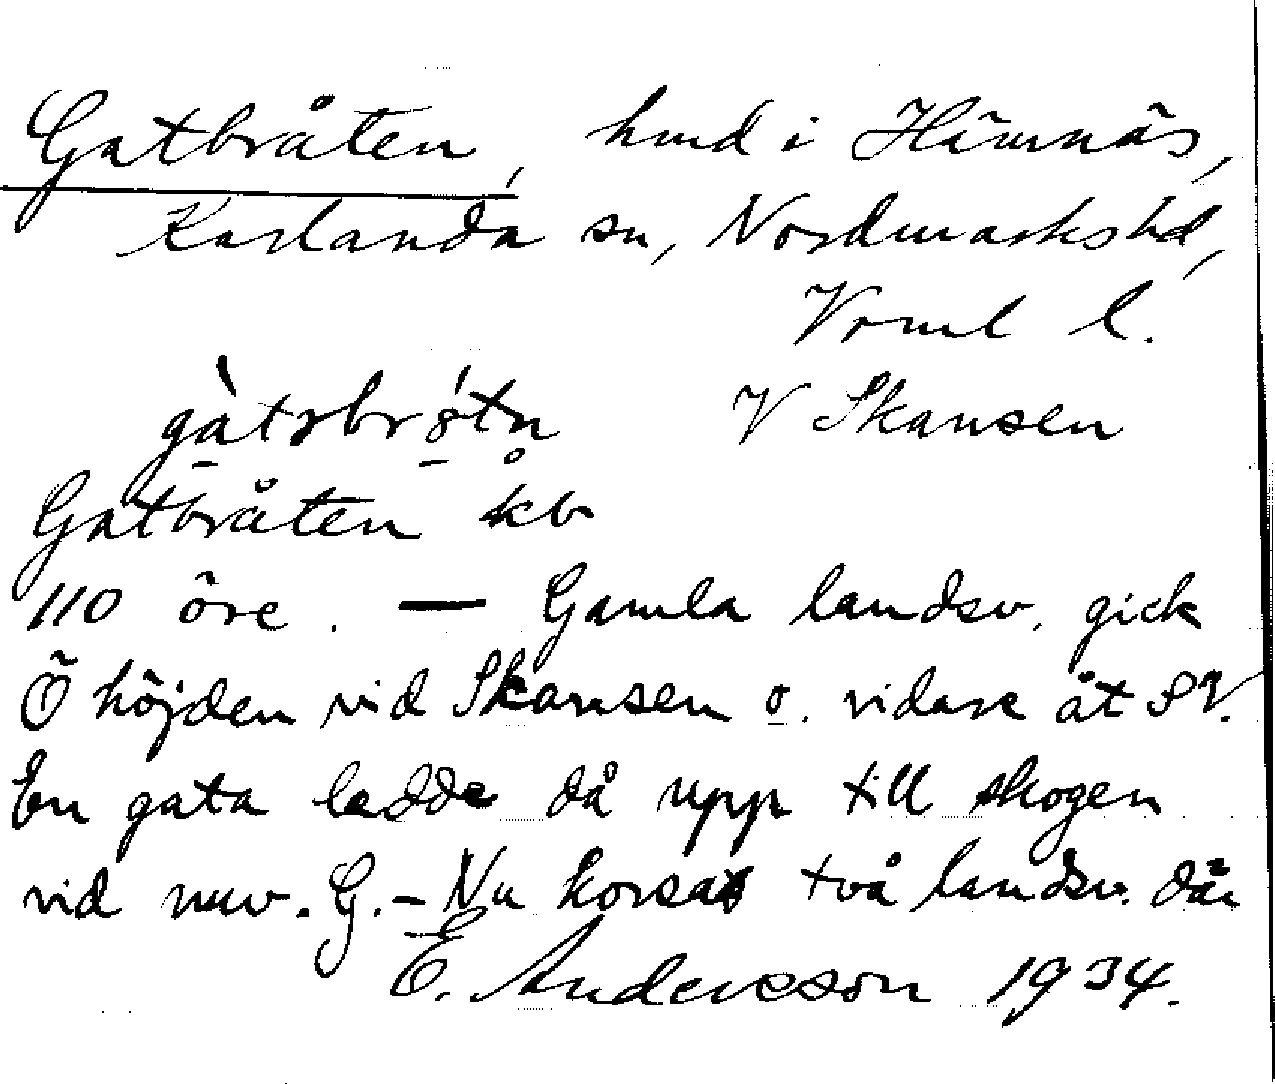 Gatbråten, hmd i Hämnäs,
Karlanda sn, Nordmarks hd,
Vrml l.
gàtsbrǿtn̥ V Skansen
Gatbråten kb
110 öre. — Gamla landsv. gick
Ö höjden vid Skansen o. vidare åt SV.
En gata ledde då upp till skogen
vid nuv. G. - Nu korsas två landsv. där
E. Andersson 1934.